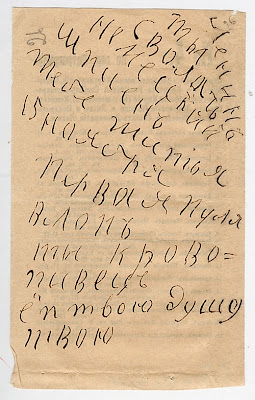 ты Ленинъ
сволачь
немецкий
шпиенъ
тебе житья
15 наября
первая пуля
влопъ
ты крово=
пивець
ёп твою душу
твою